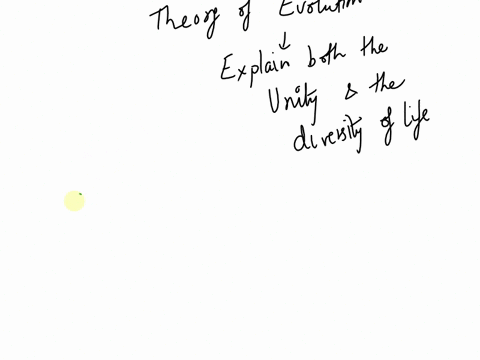 Theory of Evolution
↓
Explain both the
Unity & the
diversity of life